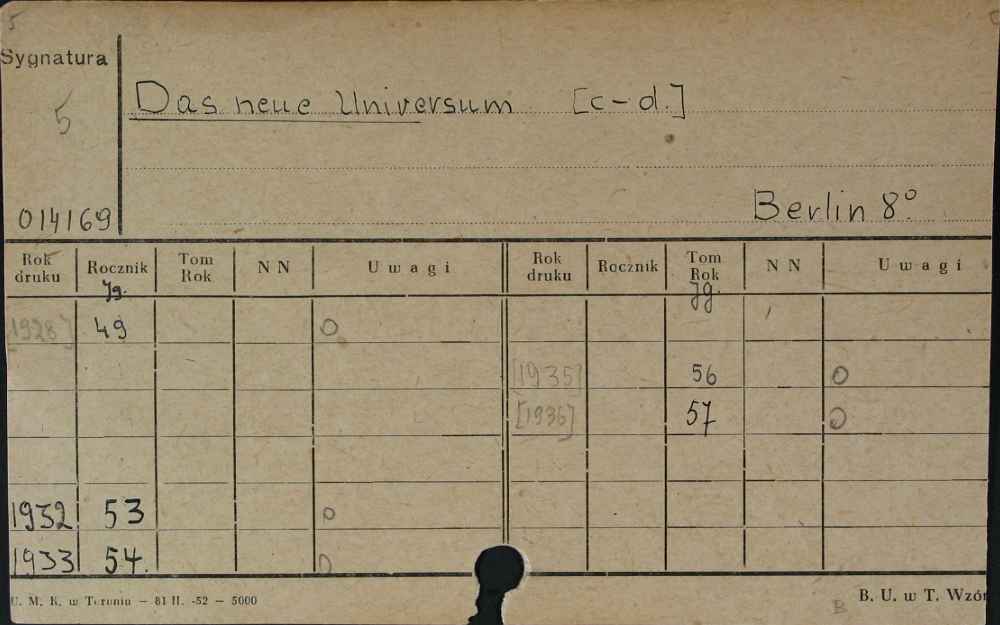 5
Sygnatura
5
Das neue Universum [c-d.]
014169
Berlin 8º
Rok druku Rocznik Jg. Tom Rok NN Uwagi Rok druku Rocznik Tom Rok Jg. NN Uwagi
[1928] 49 O
[1935] 56 O
[1936] 57 O
1932 53 O
1933 54. O
U. M. K. w Toruniu — 81 II. -52 — 5000
B. U. w T. Wzór
B